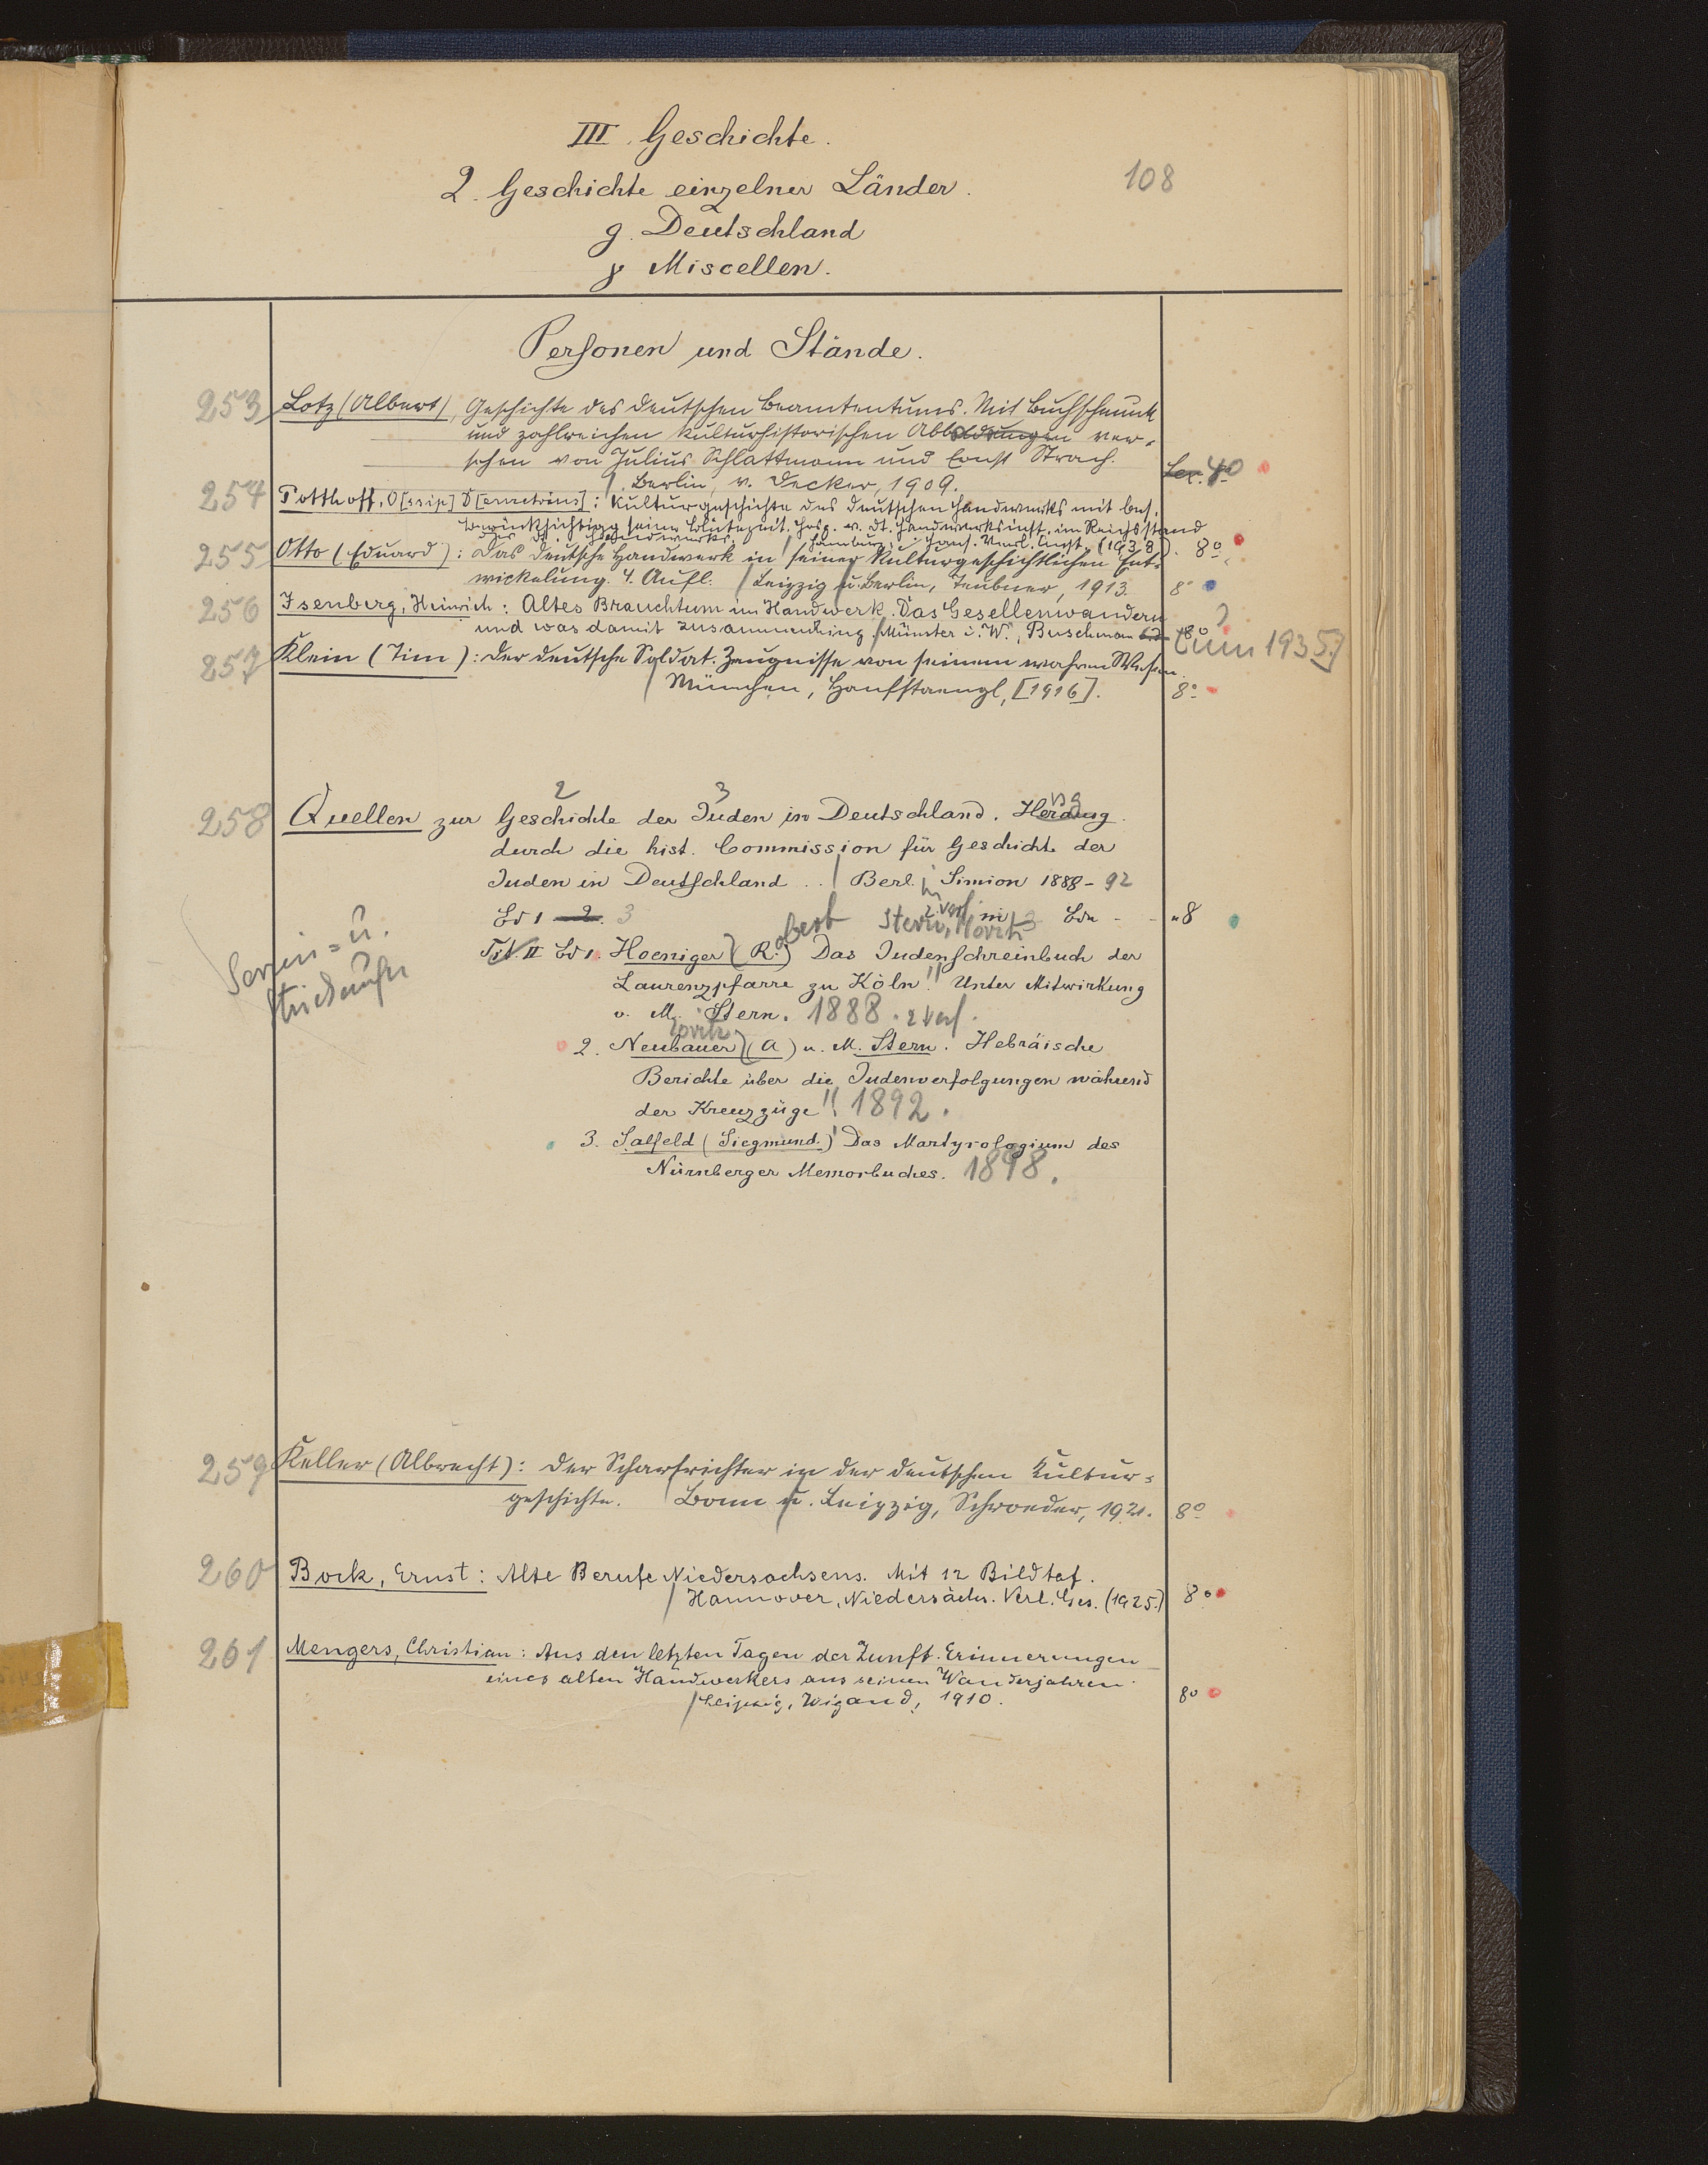 III. Geschichte.
108
2. Geschichte einzelner Länder.
g. Deutschland
γ Miscellen.
Personen und Stände.
253 Lotz (Albert), Geschichte des deutschen Beamtentums. Mit Buchschmuck
und zahlreichen kulturhistorischen Abbildungen ver-
sehen von Julius Schlattmann und Ernst Strach.
Berlin, v. Decker, 1909. Lex. 4°
254 Potthoff, O[ssip] D[emetrius]: Kulturgeschichte des deutschen Handwerks mit bes.
Berücksichtigg seiner Blütezeit. Hrsg. v. Dt. Handwerksinst. im Reichsstand
des dt. Handwerks. / Hamburg: Hans. Verl. Anst. (1938). 8°
255 Otto (Eduard): Das deutsche Handwerk in seiner kulturgeschichtlichen Ent-
wickelung. 4. Aufl. / Leipzig u. Berlin, Teubner, 1913. 8°
256 Isenberg, Heinrich: Altes Brauchtum im Handwerk. Das Gesellenwandern
und was damit zusammenhing. / Münster i. W., Buschmann 8°
[um 1935.]
257 Klein (Tim): Der deutsche Soldat. Zeugnisse von seinem wahren Wesen.
/ München, Hanfstaengl, [1916]. 8°
2 3
258 Quellen zur Geschichte der Juden in Deutschland. Herausg.
durch die hist. Commission für Geschichte der
Juden in Deutschland .. / Berl. Simion 1888-92
Bd 1 - 2. 3 in 3 Bdn - - 8
Serien= u.
Stichaufn
2 Verf.
obert Stern, Moritz
Tit. II Bd 1. Hoeniger (R.) Das Judenschreinbuch der
Laurenzpfarre zu Köln!! Unter Mitwirkung
v. M. Stern. 1888. 2 Verf.
Moritz
2. Neubauer (A) u. M. Stern. Hebräische
Berichte über die Judenverfolgungen während
der Kreuzzüge!! 1892.
3. Salfeld (Siegmund.) Das Martyrologium des
Nürnberger Memorbuches. 1898.
259 Keller (Albrecht): Der Scharfrichter in der deutschen Kultur-
geschichte. / Bonn u. Leipzig, Schroeder, 1921. 8°
260 Bock, Ernst: Alte Berufe Niedersachsens. Mit 12 Bildtaf.
/ Hannover, Niedersächs. Verl. Ges. (1925.) 8°
261 Mengers, Christian: Aus den letzten Tagen der Zunft. Erinnerungen
eines alten Handwerkers aus seinen Wanderjahren.
/ Leipzig, Wigand, 1910. 8°